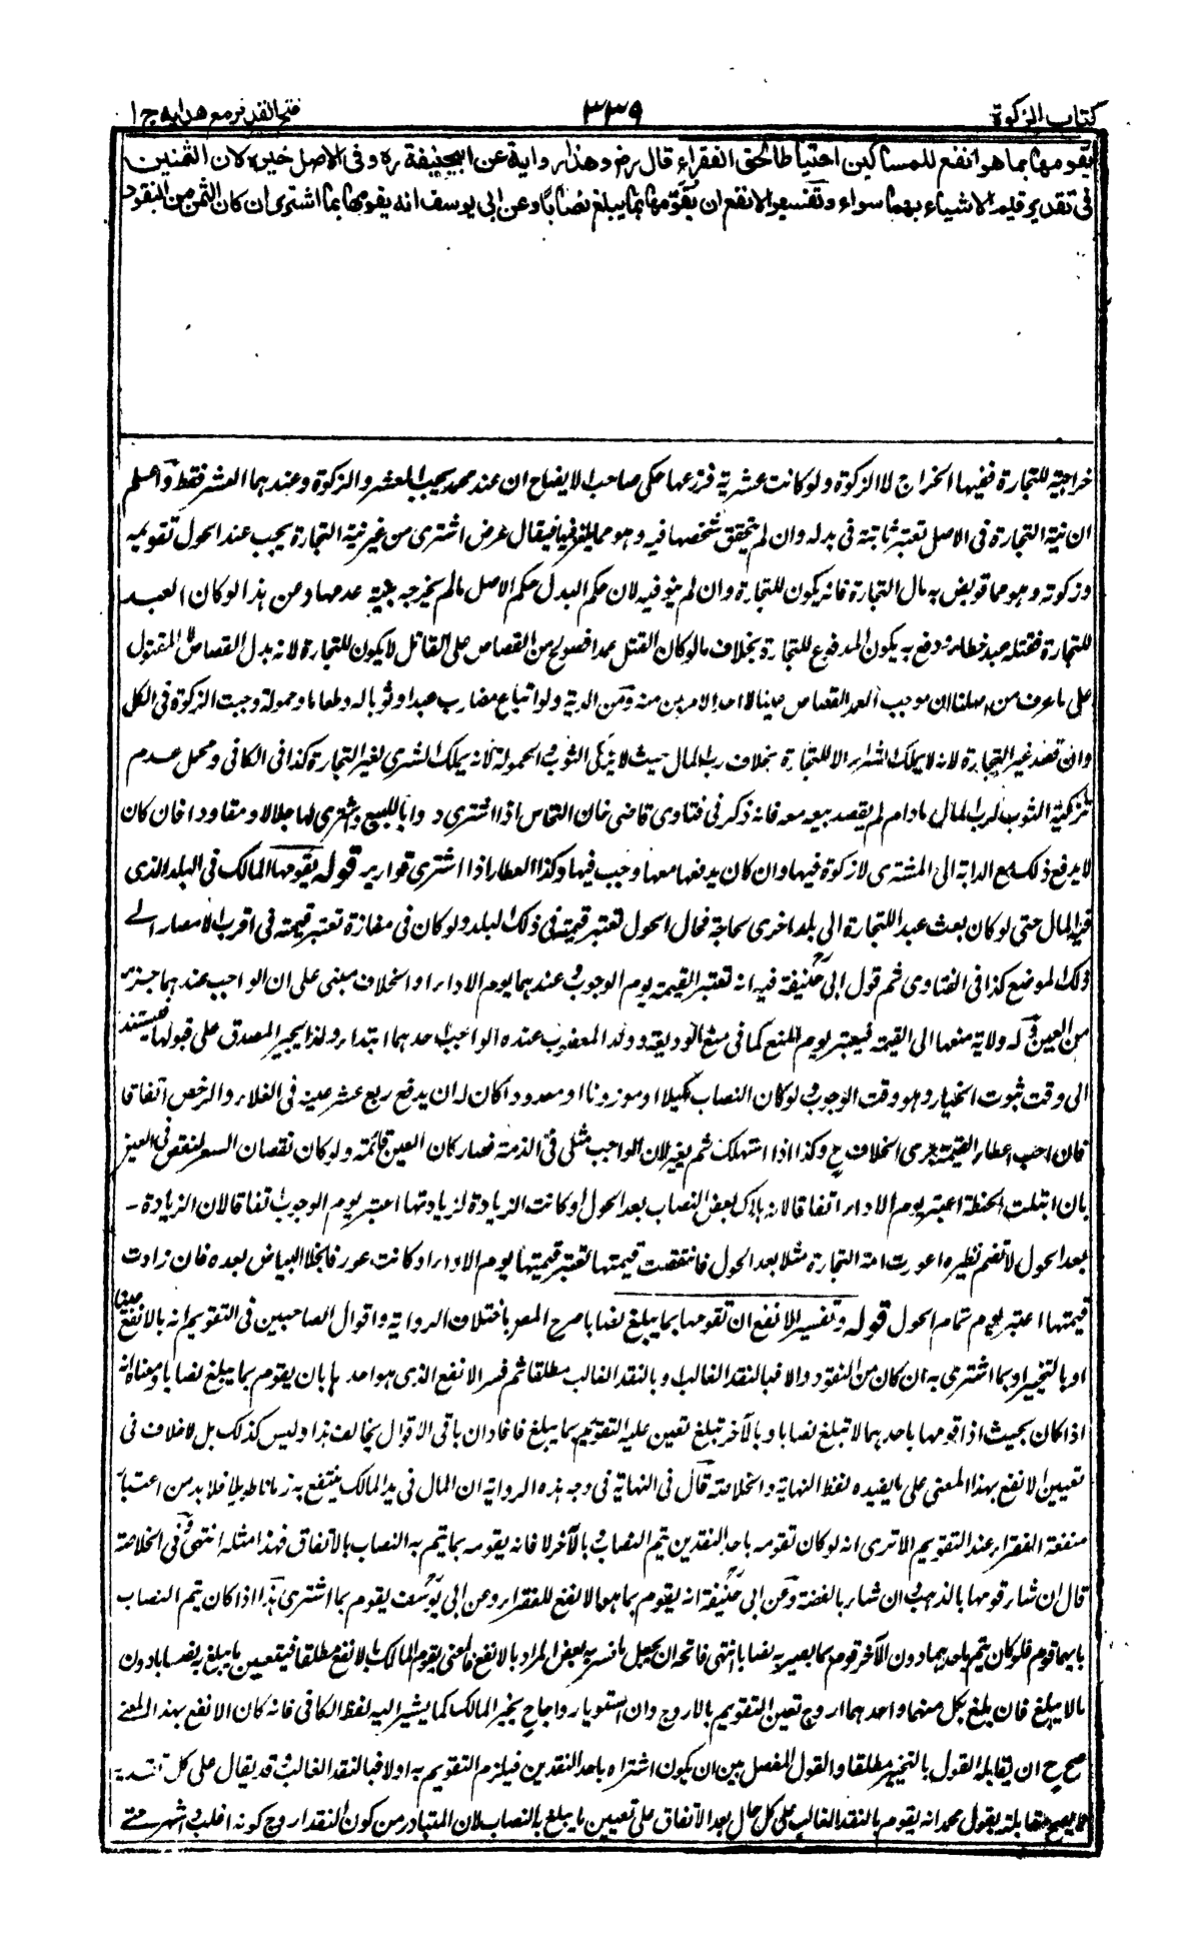 كتاب الزكوة
٣٣٩
فتح القدير مع هدايه ج ١
يقومها بما هو انفع للمساكين احتياطا لحق الفقراء قال رض وهذا رواية عن ابيحنيفة ره وفى الاصل خيره لان الثمنين
فى تقدير قيم الاشياء بهما سواء وتفسير الانفع ان يقومها بما يبلغ نصابا وعن ابى يوسف انه يقومها بما اشترى ان كان الثمن من النقود
خراجية للتجارة ففيها الخراج لا الزكوة ولو كانت عشرية فزرعها حكى صاحب الايضاح ان عند محمد يجب العشر والزكوة وعندهما العشر فقط واعلم
ان نية التجارة فى الاصل تعتبر ثابتة فى بدله وان لم يتحقق شخصها فيه وهو ما يلغز فيها فيقال عرض اشترى من غير نية التجارة يجب عند الحول تقويمه
وزكوته وهو ما قويض به مال التجارة فانه يكون للتجارة وان لم ينو فيه لان حكم البدل حكم الاصل مالم يخرجه بنية عدمها وعن هذا لو كان العبد
للتجارة فقتله عبد خطاء ودفع به يكون المدفوع للتجارة بخلاف ما لو كان القتل عمدا فصولح من القصاص على القاتل لا يكون للتجارة لانه بدل القصاص لا المقتول
على ما عرف من اصلنا ان موجب العمد القصاص عينا لا احد الامرين منه ومن الدية ولو ابتاع مضارب عبدا وثوبا له وطعاما وحمولة وجبت الزكوة فى الكل
وان قصد غير التجارة لانه لا يملك الشراء الا للتجارة بخلاف رب المال حيث لا يزكى الثوب والحمولة لانه يملك الشرى لغير التجارة كذا فى الكافى ومحمل عدم
تزكية الثوب لرب المال مادام لم يقصد بيعه معه فانه ذكر فى فتاوى قاضى خان النخاس اذا اشترى دوابا للبيع واشترى لها جلالا ومقاود فان كان
لا يدفع ذلك مع الدابة الى المشترى لا زكوة فيها وان كان يدفعها معها وجب فيها وكذا العطار اذا اشترى قوارير قوله يقومها المالك فى البلد الذى
فيه المال حتى لو كان بعث عبدا للتجارة الى بلد اخرى لحاجة فحال الحول تعتبر قيمته فى ذلك البلد ولو كان فى مفازة تعتبر قيمته فى اقرب الامصار الى
ذلك الموضع كذا فى الفتاوى ثم قول ابى حنيفة فيه انه تعتبر القيمة يوم الوجوب وعندهما يوم الاداء والخلاف مبنى على ان الواجب عندهما جزء
من العين وله ولاية منعها الى القيمة فيعتبر يوم المنع كما فى منع الوديعة وولد المغصوب عنده الواجب احدهما ابتداء ولذا يجبر المصدق على قبولها فيستند
الى وقت ثبوت الخيار وهو وقت الوجوب ولو كان النصاب مكيلا او موزونا او معدودا كان له ان يدفع ربع عشر عينه فى الغلاء والرخص اتفاقا
فان احب اعطاء القيمة جرى الخلاف ح وكذا اذا استهلك ثم تغير لان الواجب مثل فى الذمة فصار كان العين قائمة ولو كان نقصان السعر لنقص فى العين
بان ابتلت الحنطة اعتبر يوم الاداء اتفاقا لانه هلاك بعض النصاب بعد الحول او كانت الزيادة لزيادتها اعتبر يوم الوجوب اتفاقا لان الزيادة
بعد الحول لا تضم نظيره اعورت امة التجارة مثلا بعد الحول فانتقصت قيمتها تعتبر قيمتها يوم الاداء او كانت عوراء فانجلا البياض بعده فان زادت
قيمتها اعتبر يوم تمام الحول قوله وتفسير الانفع ان تقومها بما يبلغ نصابا صرح المصر باختلاف الرواية واقوال الصاحبين فى التقويم انه بالانفع عينا
او بالتخيير او بما اشترى به ان كان من النقود والا فبالنقد الغالب او بالنقد الغالب مطلقا ثم فسر الانفع الذى هو احدها بان يقوم بما يبلغ نصابا ومعناه انه
اذا كان بحيث اذا قومها باحدهما لا تبلغ نصابا وبالآخر تبلغ تعين عليه التقويم بما يبلغ فافاد ان باقى الاقوال يخالف هذا وليس كذلك بل لا خلاف فى
تعيين الانفع بهذا المعنى على ما يفيده لفظ النهاية والخلاصة قال فى النهاية فى وجه هذه الرواية ان المال فى يد المالك ينتفع به زمانا طويلا فلا بد من اعتبار
منفعة الفقراء عند التقويم الا ترى انه لو كان تقومه باحد النقدين يتم النصاب وبالآخر لا فانه يقومه بما يتم به النصاب بالاتفاق فهذا مثله انتهى وفى الخلاصة
قال ان شاء قومها بالذهب وان شاء بالفضة وعن ابى حنيفة انه يقوم بما هو الانفع للفقراء وعن ابى يوسف يقوم بما اشترى هذا اذا كان يتم النصاب
بايهما قوم فلو كان يتم باحدهما دون الآخر قوم بما يصير به نصابا انتهى فانحه ان يجعل ما فسر به بعض المراد بالانفع فالمعنى يقوم المالك بالانفع مطلقا فيتعين ما يبلغ به نصابا دون
مالا يبلغ فان بلغ بكل منهما واحدهما اروج تعين التقويم بالاروج وان استويا رواجا ح يخير المالك كما يشير اليه لفظ الكافى فانه كان الانفع بهذا المعنى
صح ح ان يقابله القول بالتخيير مطلقا والقول المفصل بين ان يكون اشتراه باحد النقدين فيلزم التقويم به اولا فبالنقد الغالب وقد يقال على كل تقدير
لا يصح مقابلته بقول محمد انه يقوم بالنقد الغالب على كل حال بعد الاتفاق على تعيين ما يبلغ به النصاب لان المتبادر من كون النقد اروج كونه اغلب واشهر حتى